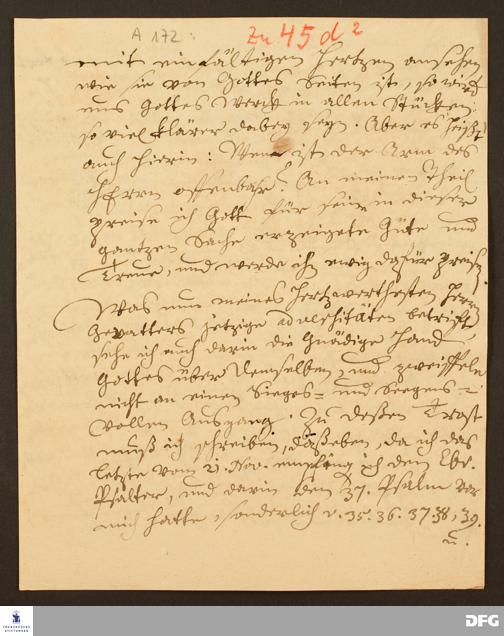 A 172.
Zu 45 d 2
mit einfältigen Hertzen ansehen
wie sie von Gottes Seiten ist, so wird
uns Gottes Werck in allen Stücken
so viel klärer dabey seyn. Aber es heißt
auch hierin: Wem ist der Arm des
HErrn offenbahr? An meinen Theil
preise ich Gott für seine in dieser
gantzen Sache erzeigete Güte und
Treue, und werde ihn ewig dafür preisen
Was nun meines Hertzwerthesten Herrn
Gevatters jetzige adversitäten betrifft,
sehe ich auch darin die Gnädige Hand
Gottes über denselben, und zweiffele
nicht an einen Sieges= und Seegens=
vollen Ausgang. Zu deßen Trost
muß ich schreiben, daß eben, da ich das
letzte vom 21. Nov. empfing ich den Ebr.
Psalter, und darin den 37. Psalm vor
mich hatte, sonderlich v. 35. 36. 37. 38, 39.
u.
FRANCKESCHE
STIFTUNGEN
DFG